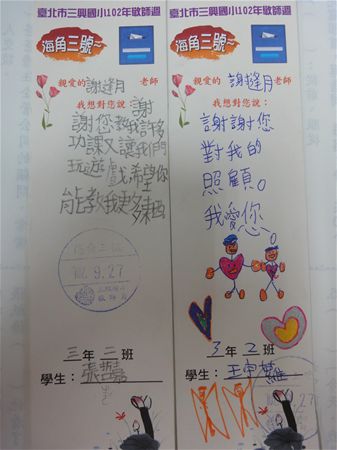 臺北市三興國小102年敬師週
海角三號~
親愛的 謝逢月 老師
我想對您說：
謝
謝您教我許多
功課又讓我們
玩遊戲希望你
能教我更多東西
海角三號
102.9.27
三年二班
學生：張
臺北市三興國小102年敬師週
海角三號~
親愛的 謝逢月 老師
我想對您說：
謝謝您
對我的
照顧。
我愛您
3年2班
學生：王宇
27